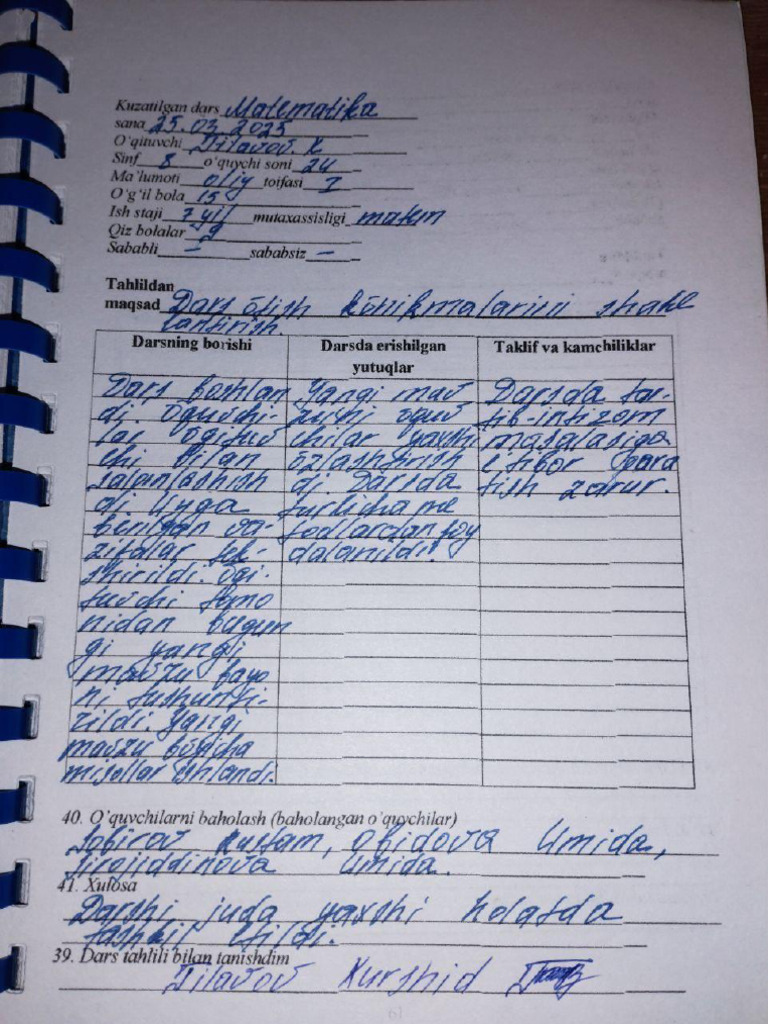 Kuzatilgan dars Matematika
sana 25.03.2025
O'qituvchi Jilavov. X
Sinf 8 o'quvchi soni 24
Ma'lumoti oliy toifasi I
O'g'il bola 15
Ish staji 7 yil mutaxassisligi matem
Qiz bolalar 9
Sababli – sababsiz –
Tahlildan
maqsad Dars ōtish kōnikmalarini shakl
lantirish.
Darsning borishi
Dars boshlan
di. Oquvchi-
lar ōqituv
chi bilan
salomlashish
di. Uyga
berilgan va-
zifalar tek-
shirildi. ōqi-
tuvchi tomo
nidan bugun
gi yangi
mavzu bayo
ni tushunti-
rildi. Yangi
mavzu bōyicha
misollar ishlandi.
Darsda erishilgan
yutuqlar
Yangi mav
zuni ōquv
chilar yaxshi
ōzlashtirish
di. Darsda
turlicha me
todlardan foy
dalanildi.
Taklif va kamchiliklar
Darsda tar-
tib-intizom
masalasiga
e'tibor qara
tish zarur.
40. O'quvchilarni baholash (baholangan o'quvchilar)
Sobirov Rustam, Obidova Umida,
Sirojiddinova Umida.
41. Xulosa
Darshi juda yaxshi holatda
tashkil etildi.
39. Dars tahlili bilan tanishdim
Jilavov Xurshid
61